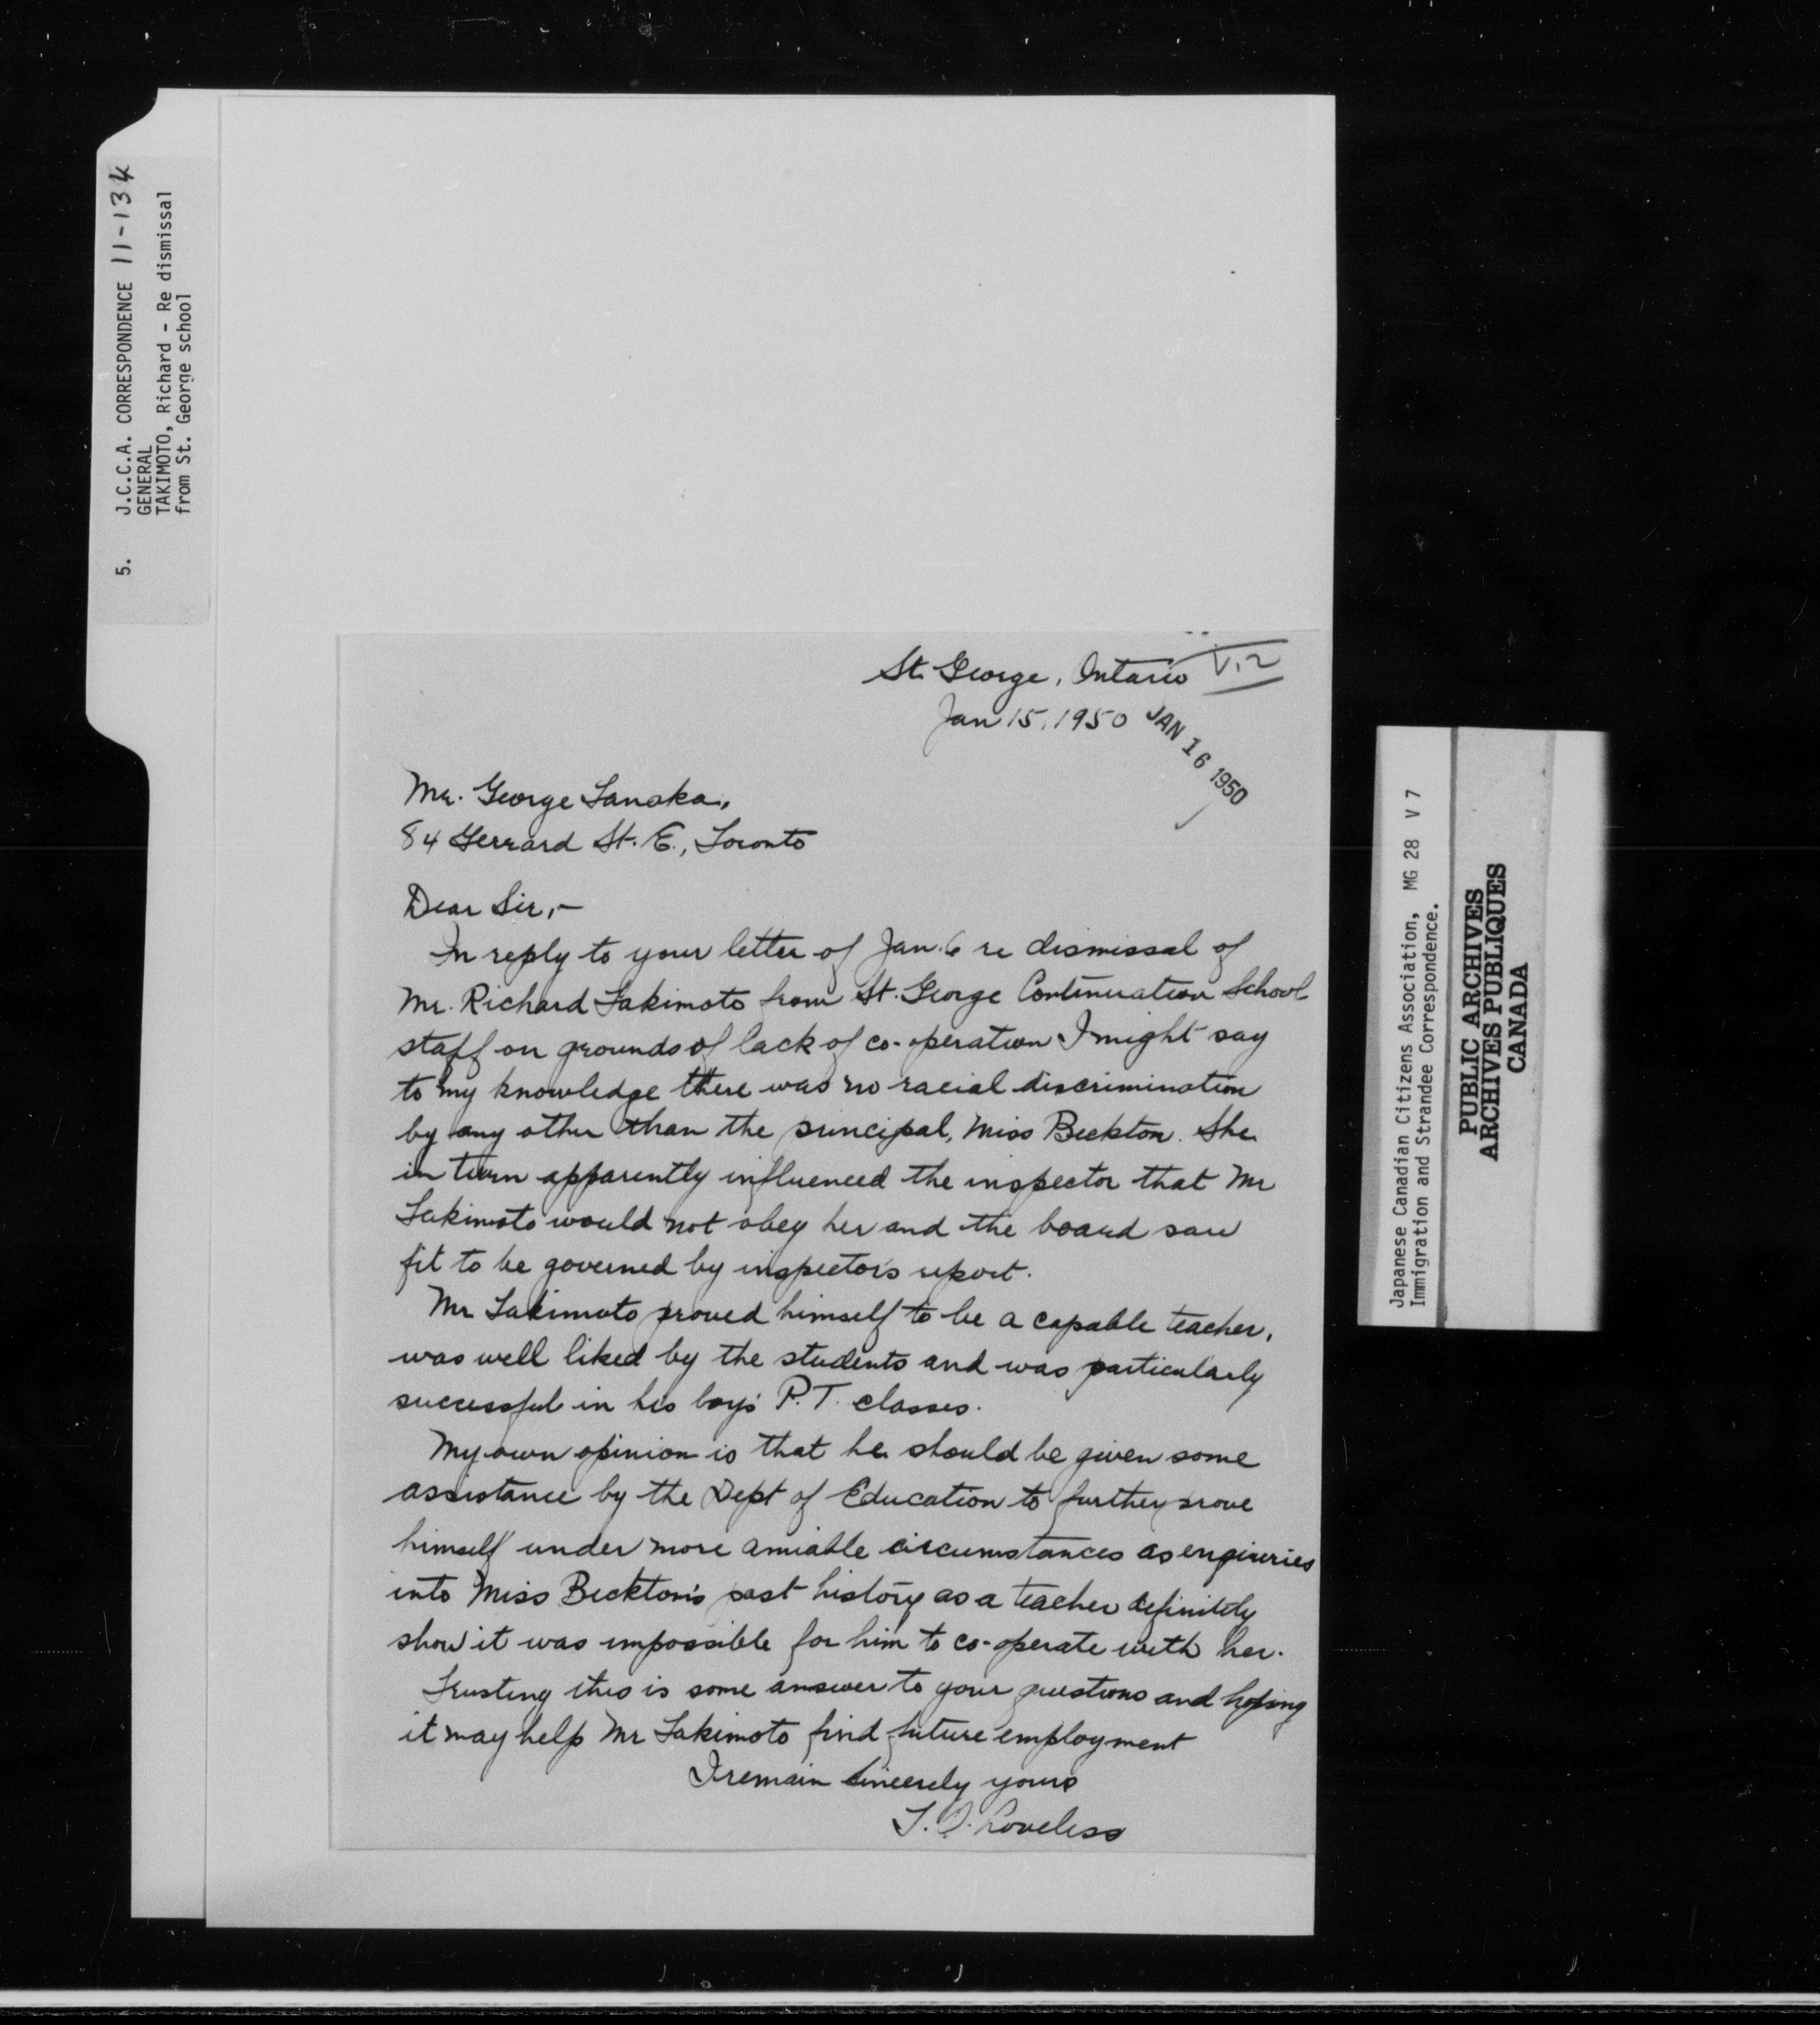 5. J.C.C.A. CORRESPONDENCE 11-134
GENERAL
TAKIMOTO, Richard - Re dismissal
from St. George school
St. George, Ontario V.2
Jan 15, 1950 JAN 16 1950
Mr. George Tanaka,
84 Gerrard St. E., Toronto
Dear Sir,-
In reply to your letter of Jan. 6 re dismissal of
Mr. Richard Takimoto from St. George Continuation School
staff on grounds of lack of co-operation I might say
to my knowledge there was no racial discrimination
by any other than the principal, Miss Beckton. She
in turn apparently influenced the inspector that Mr
Takimoto would not obey her and the board saw
fit to be governed by inspectors report.
Mr Takimoto proved himself to be a capable teacher,
was well liked by the students and was particularly
successful in his boys' P.T. classes.
My own opinion is that he should be given some
assistance by the Dept of Education to further prove
himself under more amiable circumstances as enquiries
into Miss Beckton's past history as a teacher definitely
show it was impossible for him to co-operate with her.
Trusting this is some answer to your questions and hoping
it may help Mr Takimoto find future employment
I remain sincerely yours
Loveless
Japanese Canadian Citizens Association, MG 28 V 7
Immigration and Strandee Correspondence.
PUBLIC ARCHIVES
ARCHIVES PUBLIQUES
CANADA